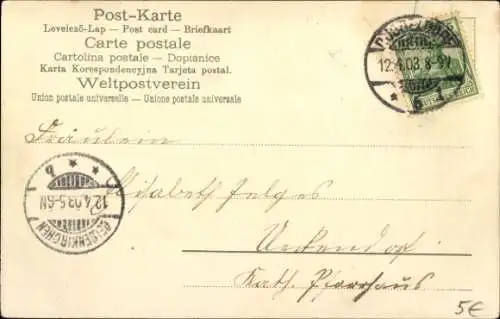 Post-Karte
Levelező-Lap — Post card — Briefkaart
Carte postale
Cartolina postale — Dopisnice
Karta Korespondencyjna Tarjeta postal.
Weltpostverein
Union postale universelle — Unione postale universale
12.4.03 8-9V
* b 1.
Fräulein
Elisabeth Felges
Ueckendorf
Kath. Pfarrhaus
GELSENKIRCHEN
12.4.03.5-6N
* b *
5€